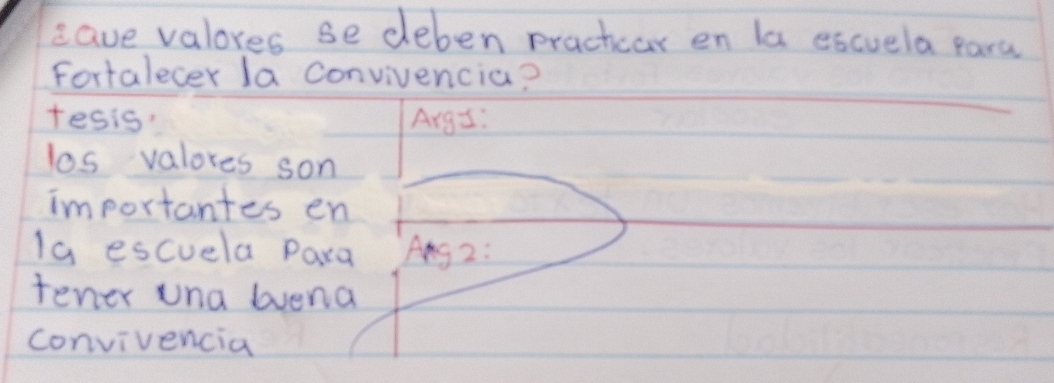 ¿Que valores se deben Practicar en la escuela Para
Fortalecer la Convivencia?
tesis.
los valores son
importantes en
la escuela Para
tener una buena
convivencia
Arg1:
Arg2: